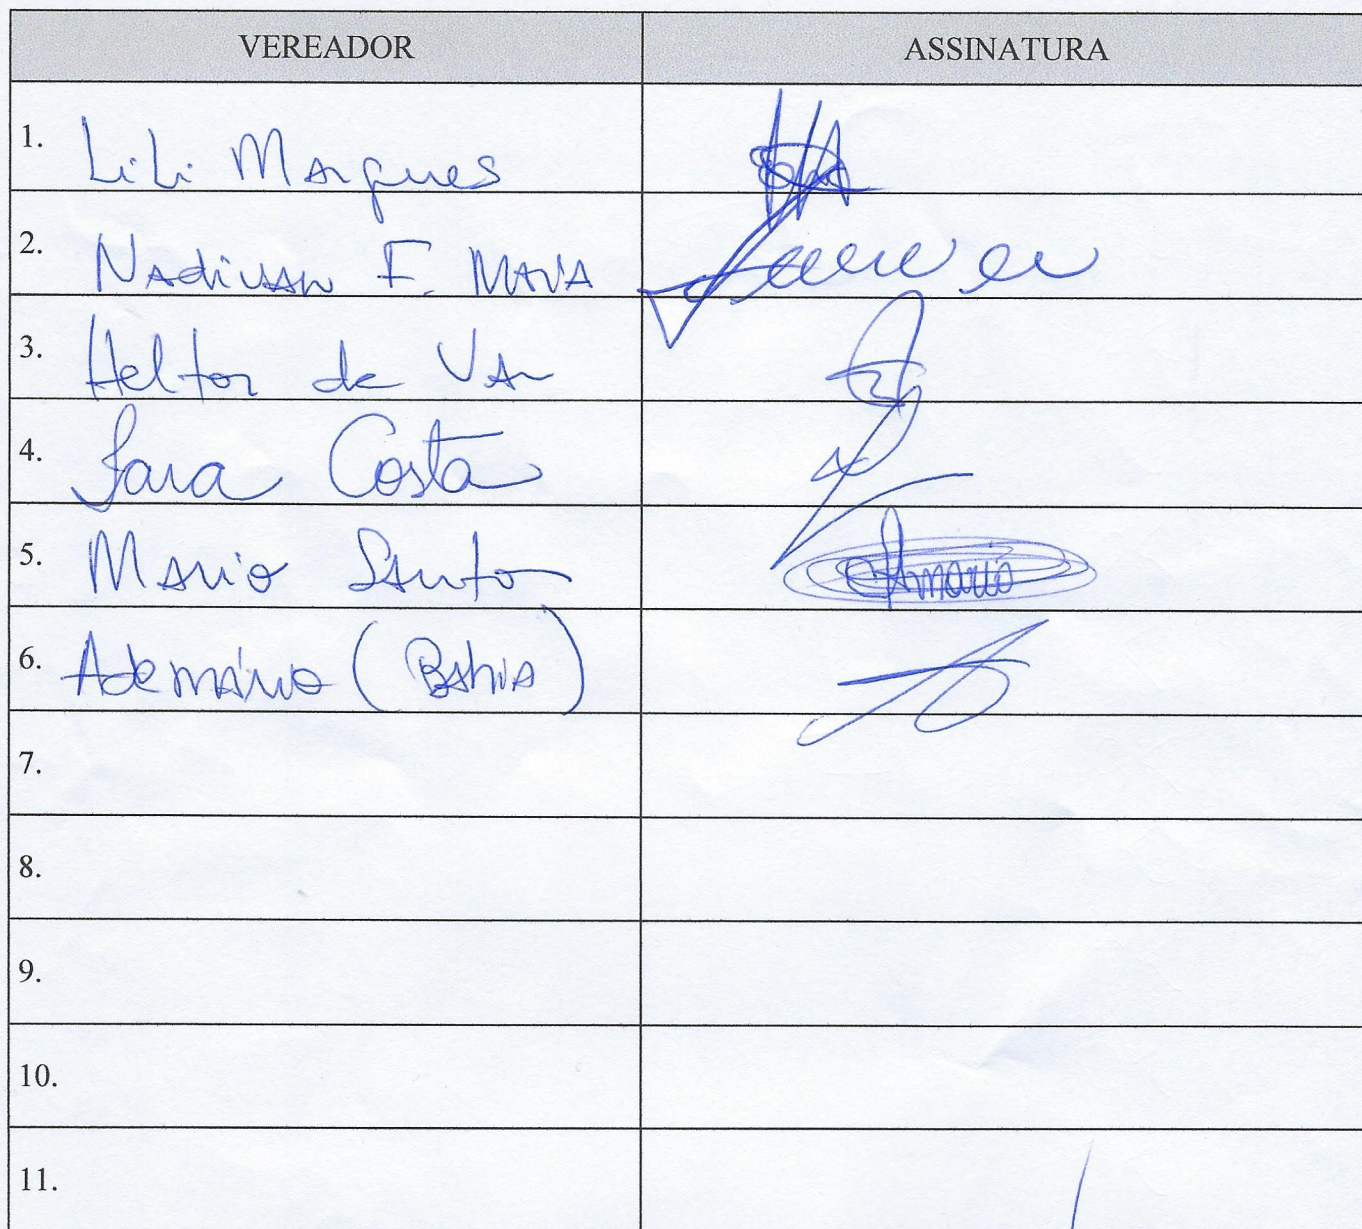 VEREADOR ASSINATURA
1. Lili Marques
2. Nadivan F. Maia
3. Heltor de Van
4. Sara Costa
5. Mario Santo
6. Ademário (Bahia)
7.
8.
9.
10.
11.